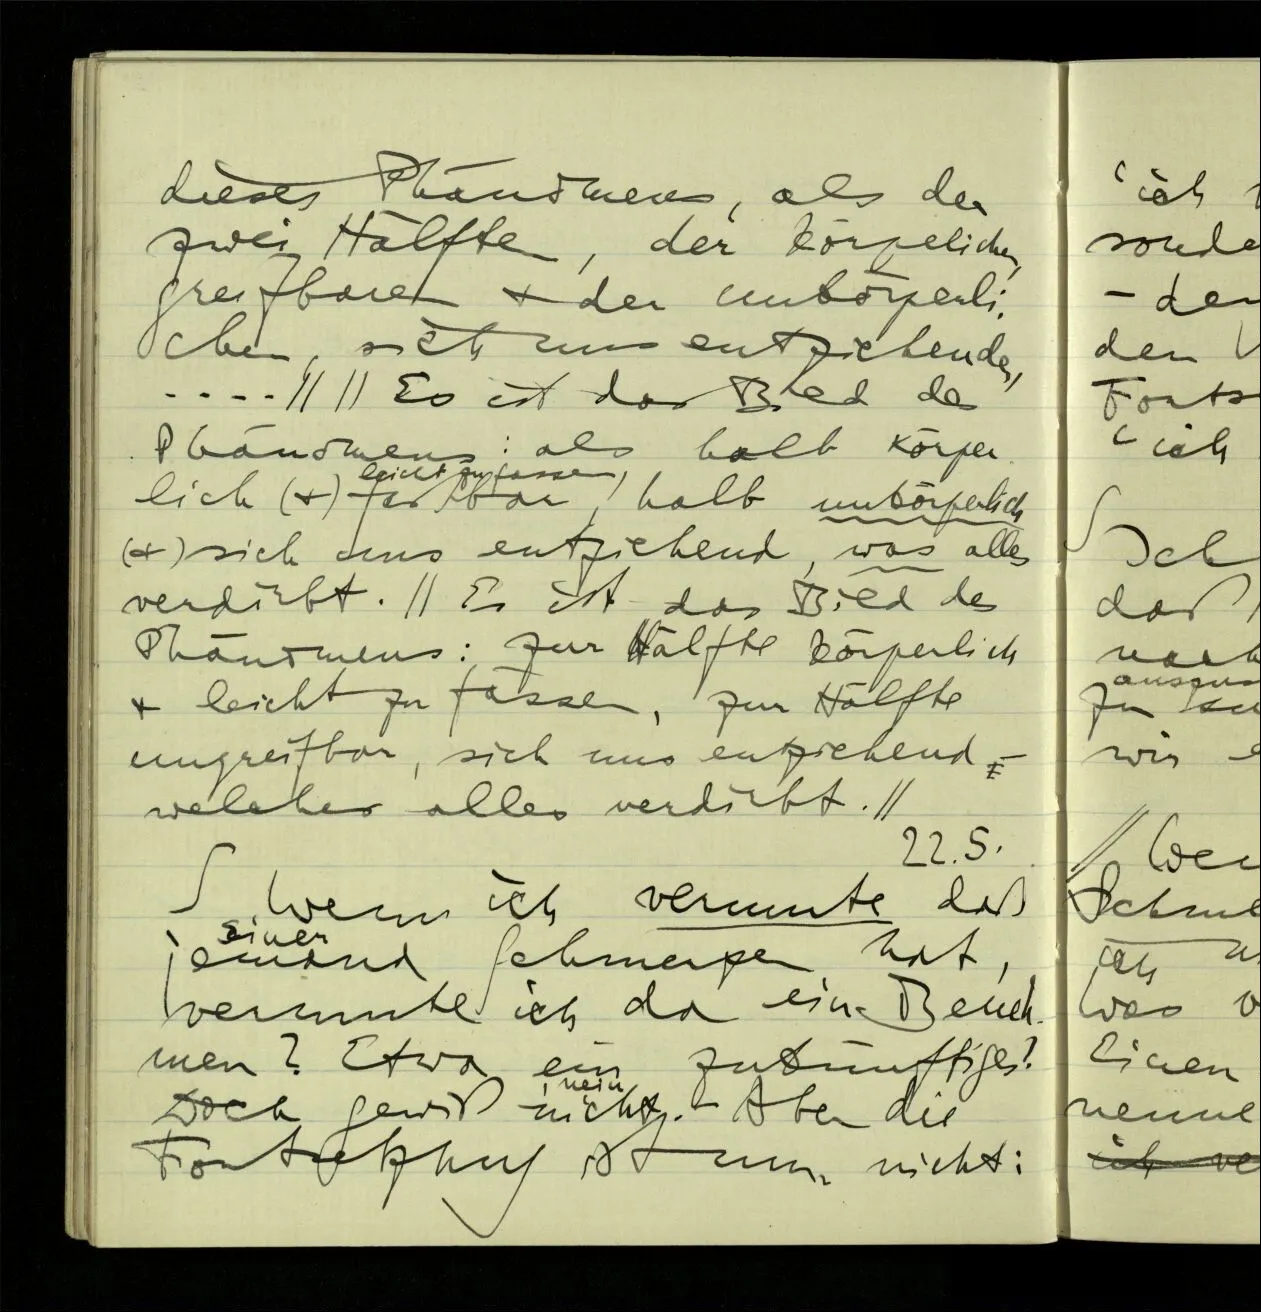 dieses Phänomens, als der
zwei Hälften, der körperlichen,
greifbaren + der unkörperli-
chen, sich uns entziehenden,
.....// // Es ist das Bild des
Phänomens: als halb körper-
leicht zu fassen,
lich (+) faßbar, halb unkörperlich
(+) sich uns entziehend, was alles
verdirbt. // Es ist das Bild des
Phänomens: zur Hälfte körperlich
+ leicht zu fassen, zur Hälfte
ungreifbar, sich uns entziehend –
welches alles verdirbt. //
22.5.
∫ Wenn ich vermute daß
einer
jemand Schmerzen hat,
vermute ich da ein Beneh-
men? Etwa ein zukünftiges?
, nein
Doch gewiß nicht. – Aber die
Fortsetzung ist nun nicht:
'ich
sonde
– der
den V
Forts
'ich
∫ Ich
daß
nach
zu
wir e
// Wen
Schme
ich
Was v
Einen
nenne
ich ve